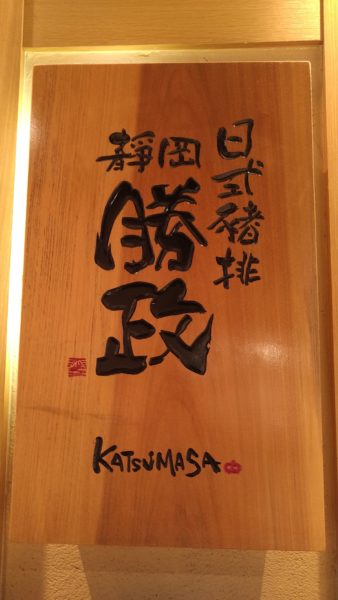 日式豬排
靜岡
勝政
KATSUMASA